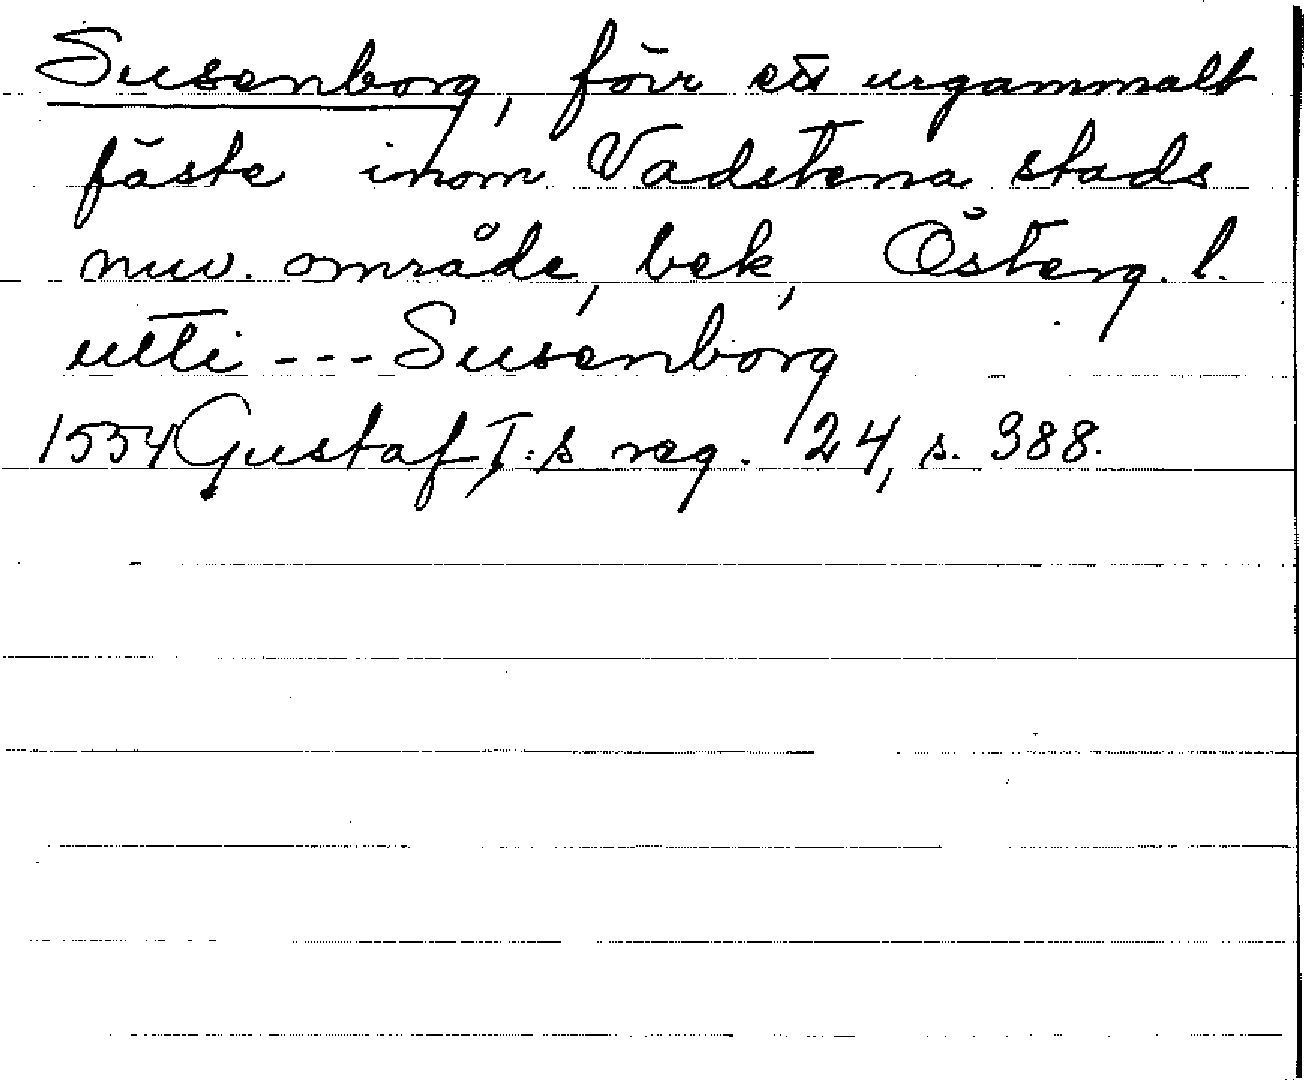 Susenborg, förr ett urgammalt
fäste inom Vadstena stads
nuv. område, bek, Österg. l.
utti --- Susenborg
1554 Gustaf I:s reg. 24, s. 388.